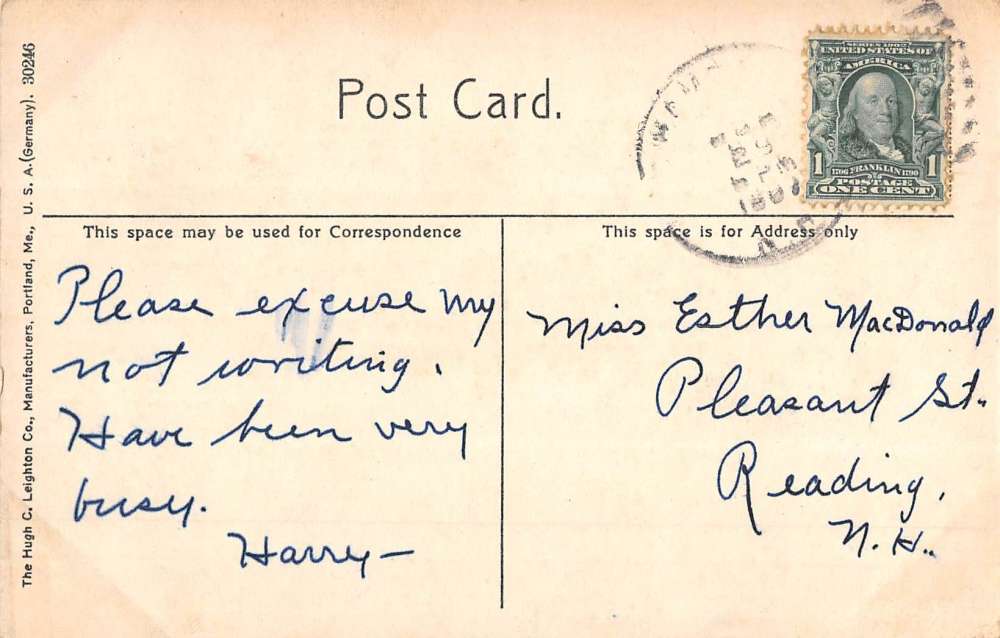 The Hugh C. Leighton Co., Manufacturers, Portland, Me., U. S. A. (Germany). 30246
Post Card.
SERIES 1902
UNITED STATES OF
AMERICA
1 1
1706 FRANKLIN 1790
POSTAGE
ONE CENT
This space may be used for Correspondence
Please excuse my
not writing.
Have been very
busy.
Harry—
This space is for Address only
Miss Esther MacDonald
Pleasant St.
Reading,
N.H.